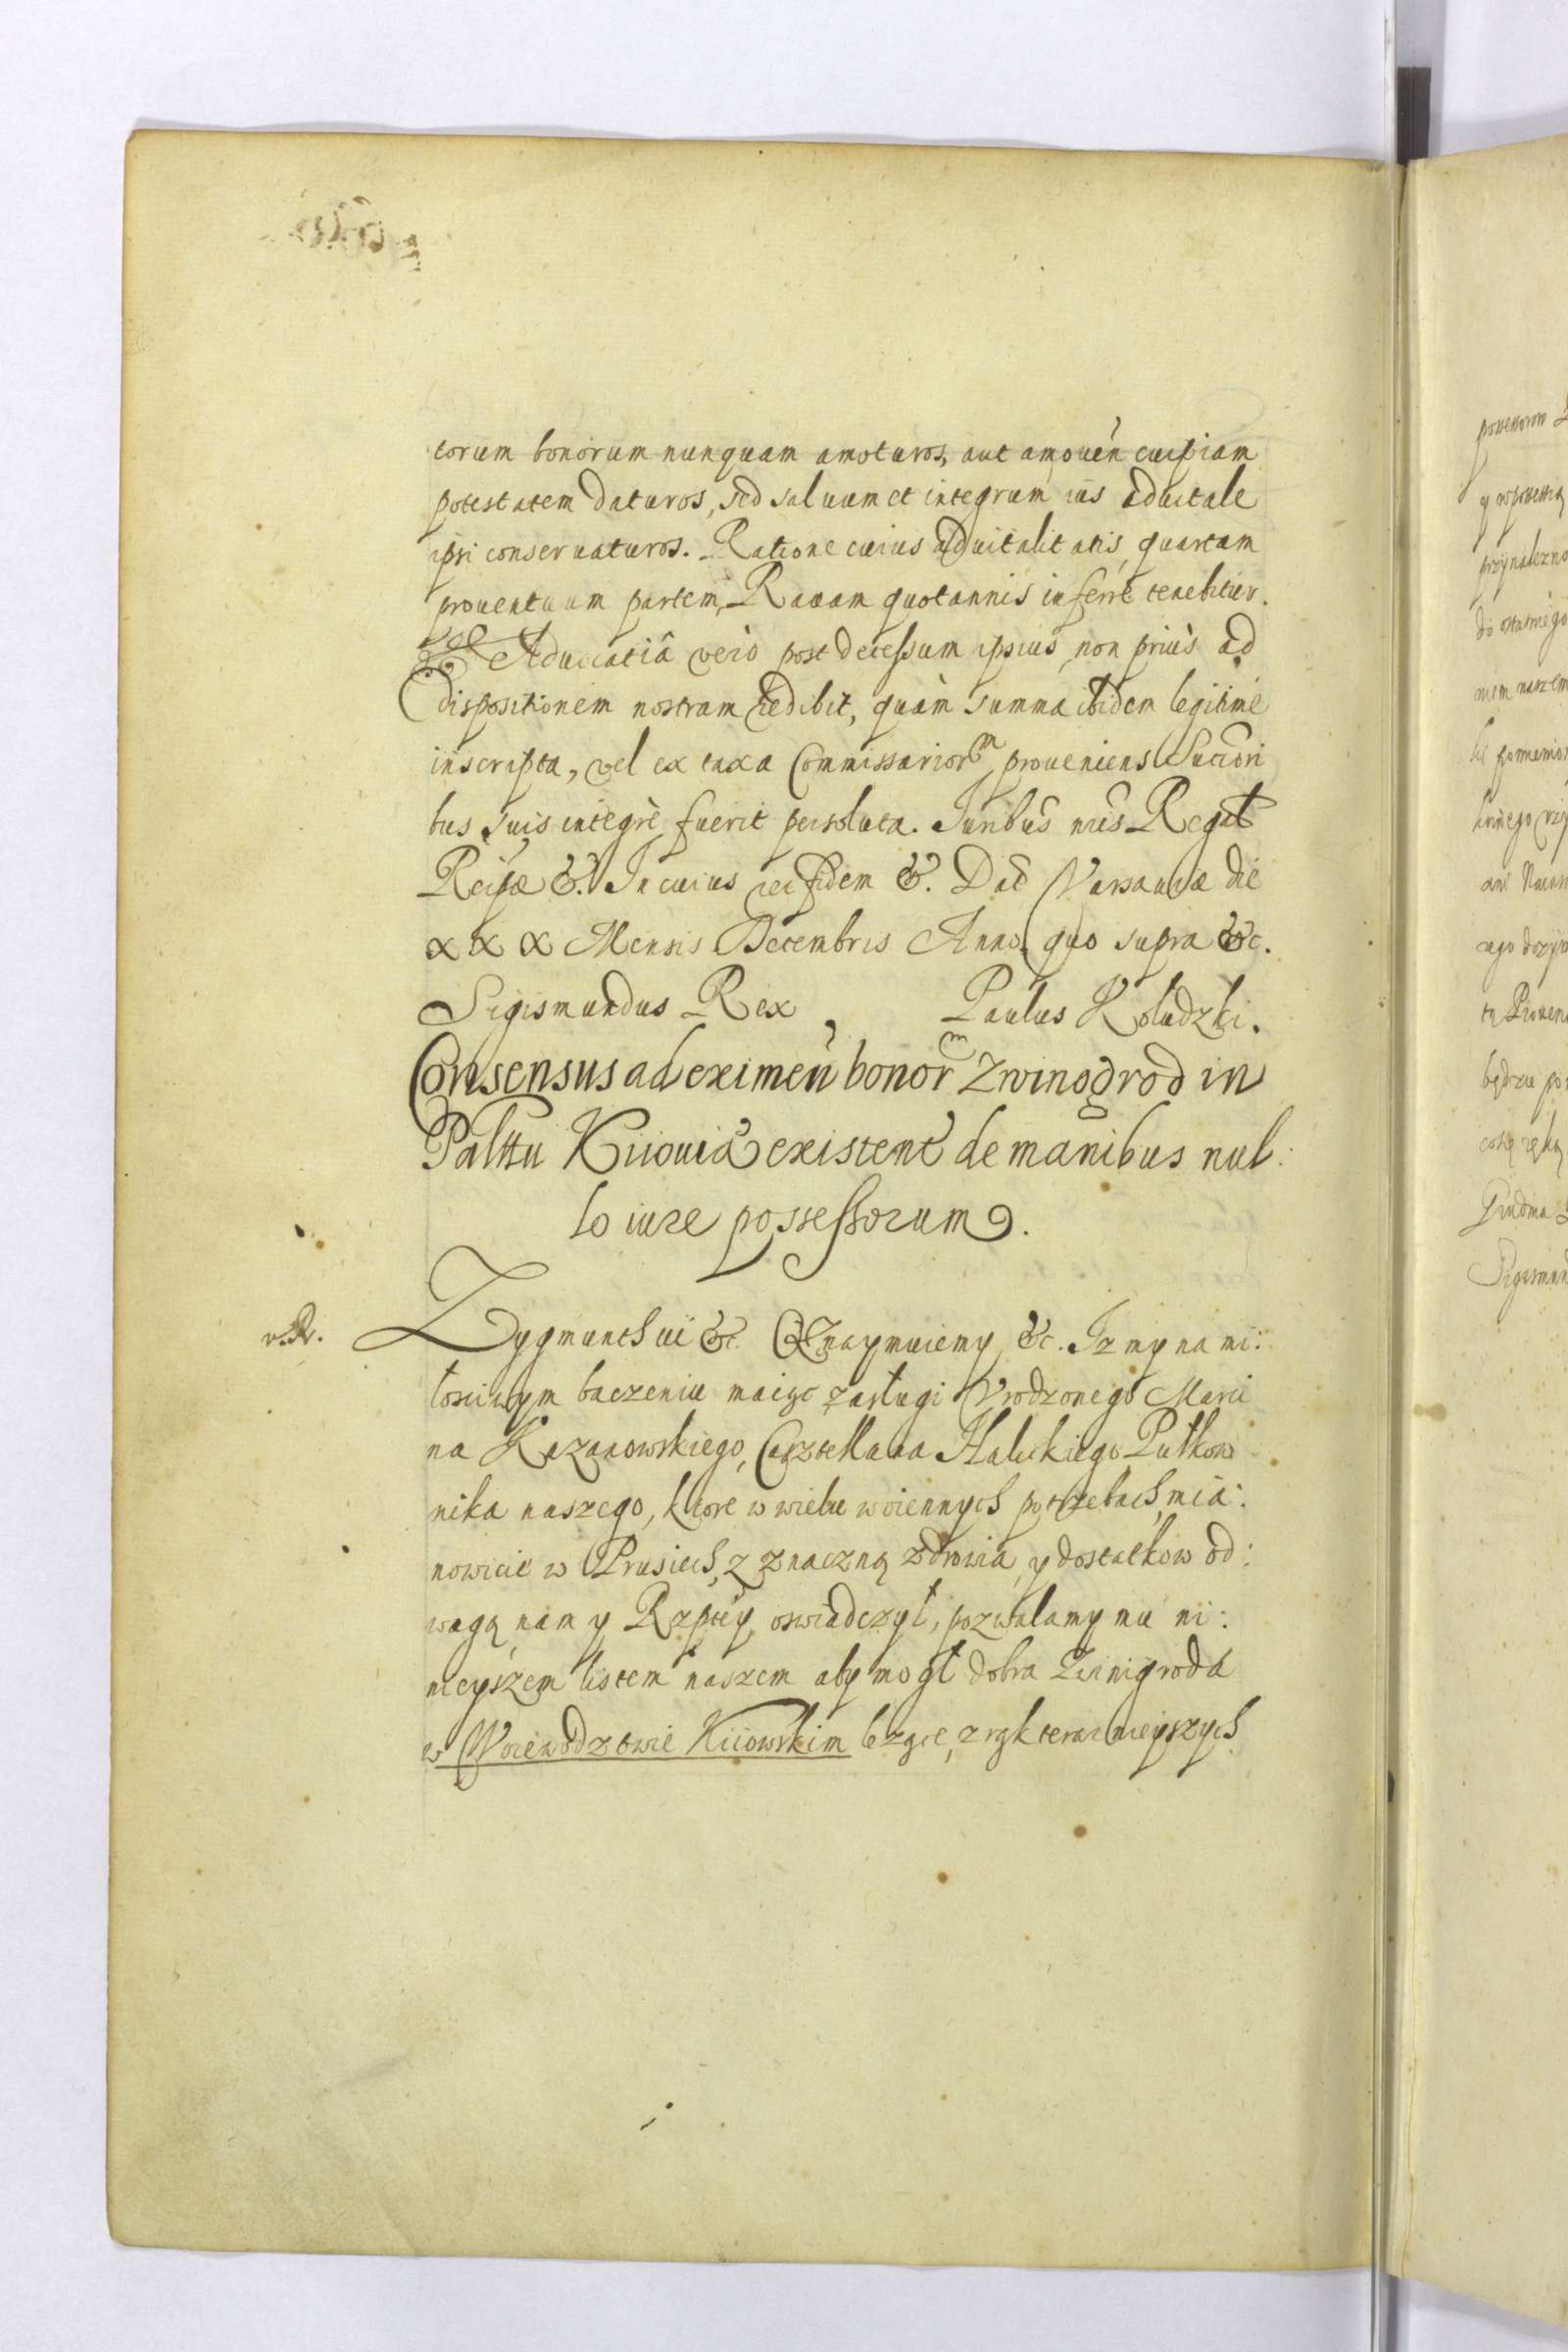 torum bonorum nunquam amoturos, aut amouen̄ cuipiam
potestatem daturos, sed saluum et integrum ius aduitale
ipsi conseruaturos. Ratione cuius aduitalitatis, quartam
prouentuum partem, Rauam quotannis inferre tenebitur.
Aduocatiâ verò post decessum ipsius, non priùs ad
dispositionem nostram redibit, quàm summa ibidem legitimè
inscripta, vel ex taxa Commissariorm proueniens Succōri
bus suis integrè fuerit persoluta. Iuribus nr̄is Regal
Reipæ &. In cuius rei fidem &. Dat̄ Varsauiæ die
XXX Mensis Decembris Anno quo supra &c.
Sigismundus Rex, Paulus Koludzki.
Consensus ad eximen̄ bonorm Zwinogrod in
Palttu Kiiouiæ existent̄ de manibus nul:
lo iure possessorum.
v.R. Zygmunth iii &c. Oznaymuiemy &c. Iz my na mi:
łosciwym baczeniu maiąc zasługi Vrodzonego Marci
na Kazanowskiego, Casztellana Halickiego Pułkow
nika naszego, ktore w wielu woiennych potrzebach, mia:
nowicie w Prusiech, z znaczną zdrowia, y dostatkow od:
wagą nam y Rzptey oswiadczył, pozwalamy mu ni:
nieyszem listem naszem aby mogł dobra Zwinigroda
w Woiewodztwie Kiiowskim lezące, z rąk teraznieyszych